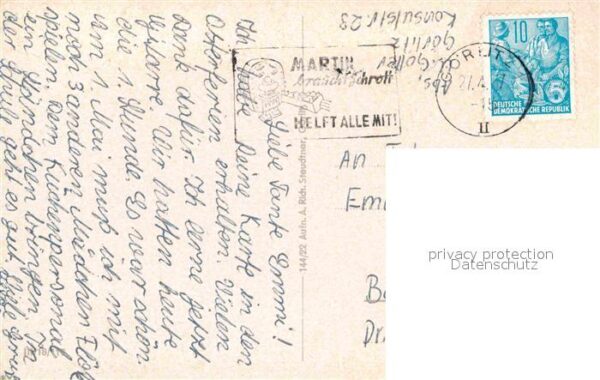 Liebe Tante Emmi!
Ich habe Deine Karte in den
Osterferien erhalten. Vielen
Dank dafür. Ich lerne jetzt
Gitarre. Wir hatten heute
die 1. Stunde. Es war schön.
am 1. Mai muß ich mit
noch 3 anderen Mädchen Flöte
spielen. Dem Küchenpersonal
ein Ständchen bringen. In
der Schule geht es gut. Viele Grüße
Konsulstr. 23
Görlitz
MARTIN
braucht Schrott
HELFT ALLE MIT!
GÖRLITZ
II
10
DEUTSCHE
DEMOKRATISCHE REPUBLIK
5
144/22 Aufn. A. Rich. Steudtner,
An
privacy protection
Datenschutz